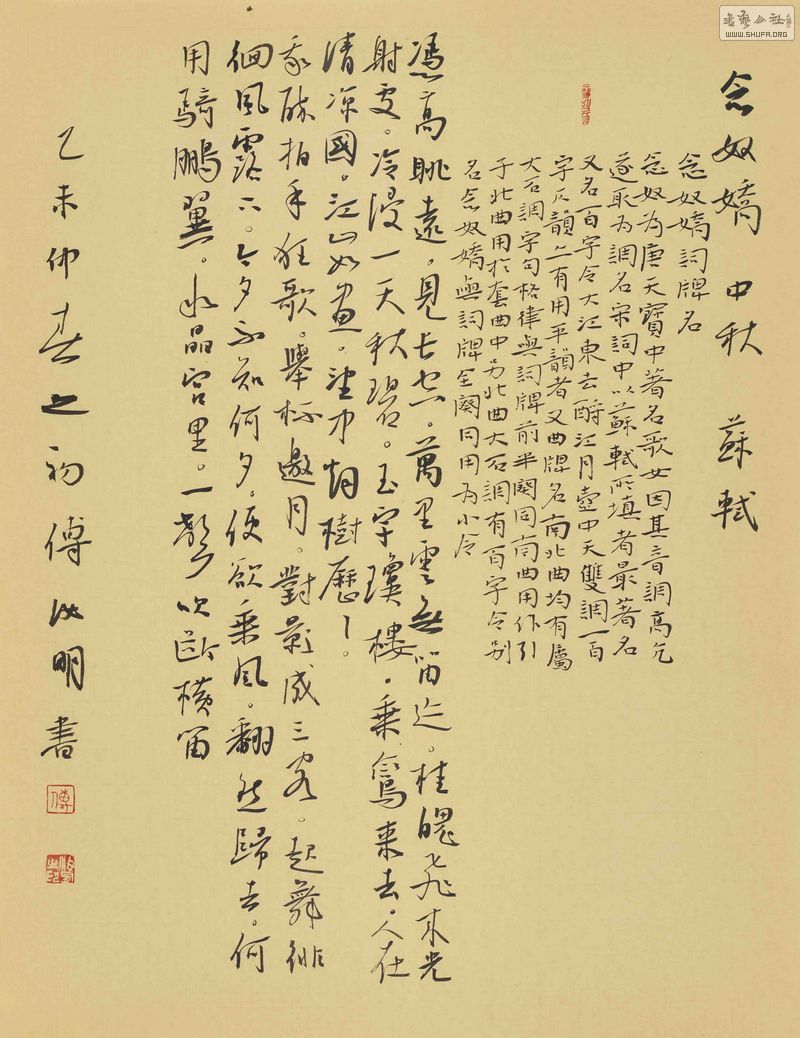 念奴嬌 中秋 蘇軾
念奴嬌詞牌名
念奴为唐天寶中著名歌女因其音調高亢
遂取为調名宋詞中以蘇軾所填者最著名
又名百字令大江東去酹江月壺中天雙調一百
字仄韻亦有用平韻者又曲牌名南北曲均有屬
大石調字句格律與詞牌前半闋同南曲用作引
子北曲用於套曲中另北曲大石調有百字令别
名念奴嬌與詞牌全闋同用为小令
馮高眺遠。見长空。萬里雲無留迹。桂魄飞來光
射處。冷浸一天秋碧。玉宇瓊樓。乘鸞來去。人在
清凉國。江山如畫。望中烟樹歷々。
我醉拍手狂歌。舉杯邀月。對影成三客。起舞徘
徊風露下。今夕不知何夕。便欲乘風。翻然歸去。何
用騎鵬翼。水晶宫里。一聲吹斷橫笛
乙未仲春之初傅 明書
傅
書藝公社
WWW.SHUFA.ORG